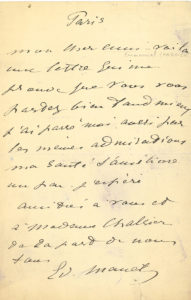 Paris
mon cher ami voilà
une lettre qui me
prouve que vous vous
portez bien tant mieux
j'ai
les mêmes admirations
ma santé s'améliore
un peu j'espère
amitiés à vous et
à Madame
de la part de nous
tous
Ed. Manet